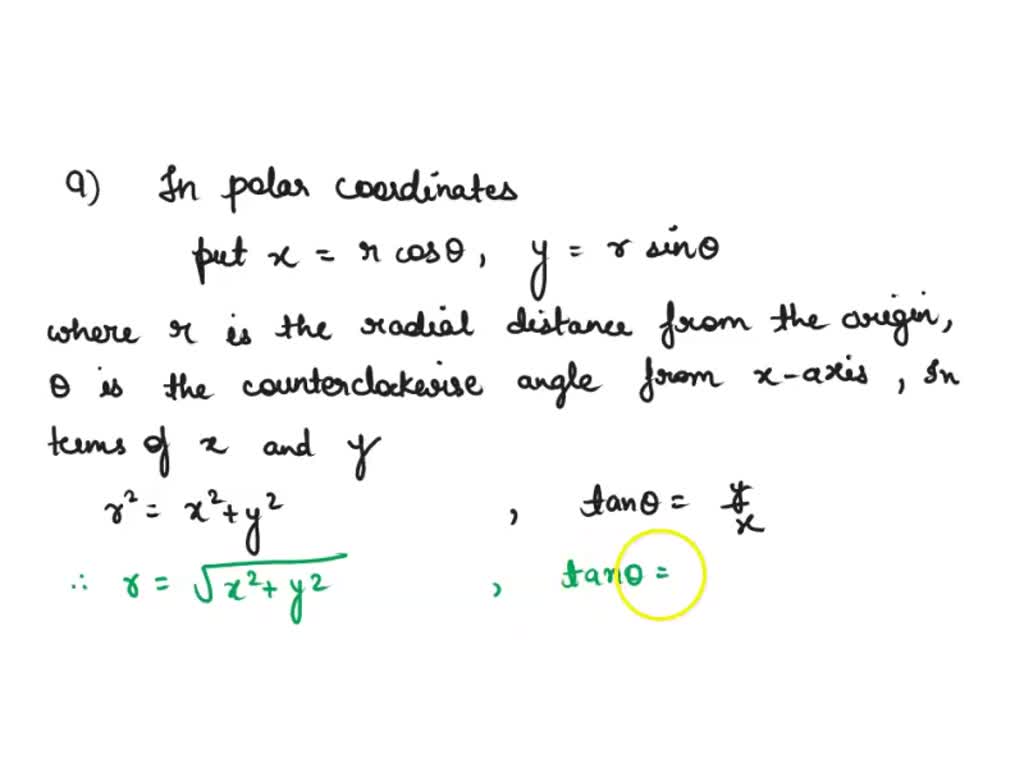 a) In polar coordinates
put x = r cosθ, y = r sinθ
where r is the radial distance from the origin,
θ is the counterclockwise angle from x-axis, In
terms of x and y
r² = x²+y² , tanθ = y/x
∴ r = √x²+y² , tanθ =